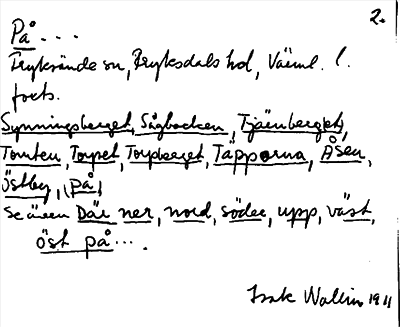 2.
På...
Fryksände sn, Fryksdals hd, Värml. l.
forts.
Synningsberget, Sågbacken, Tjärnberget,
Tomten, Torpet, Torpberget, Täpporna, Åsen,
Östby, (på)
Se även Där ner, nord, söder, upp, väst,
öst på....
Isak Wallin 1911